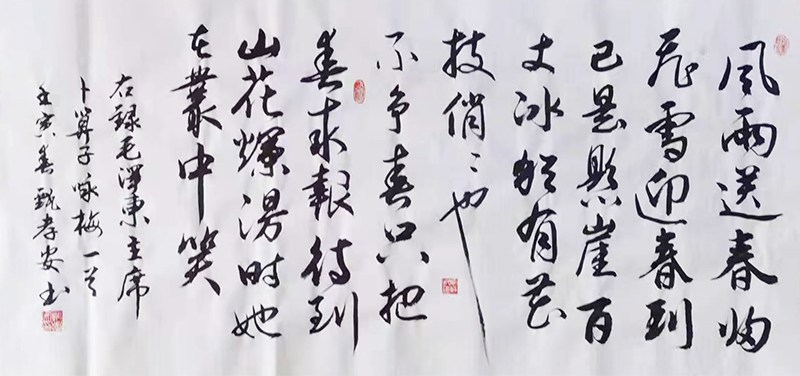 風雨送春归
飛雪迎春到
已是懸崖百
丈冰猶有花
枝俏〻也
不争春只把
春来報待到
山花爛漫时她
在叢中笑
右録毛澤東主席
卜算子咏梅一首
壬寅春甄孝安书